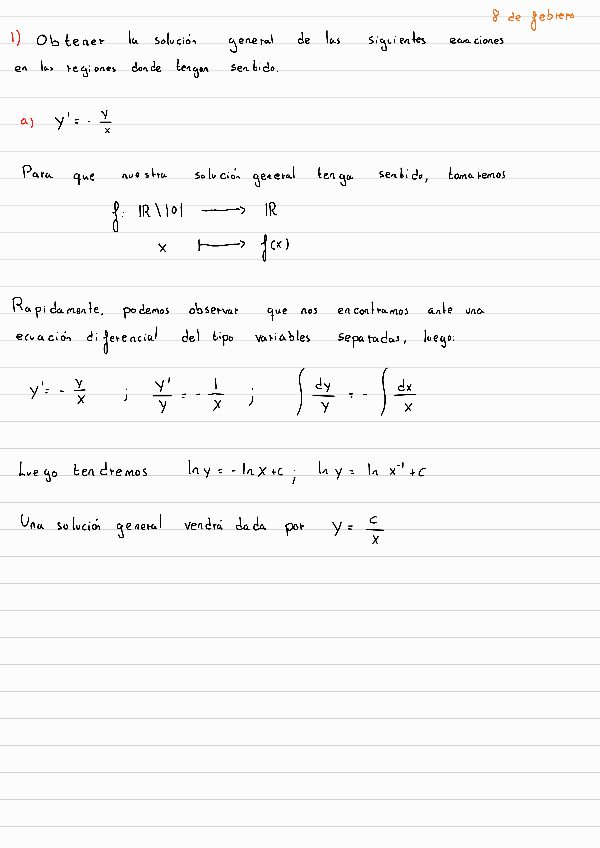 8 de febrero
1) Obtener la solución general de las siguientes ecuaciones
en las regiones donde tengan sentido.
a) y' = - y/x
Para que nuestra solución general tenga sentido, tomaremos
f: ℝ\{0} ⟶ ℝ
x ⟼ f(x)
Rapidamente, podemos observar que nos encontramos ante una
ecuación diferencial del tipo variables separadas, luego:
y' = - y/x ; y'/y = - 1/x ; ∫ dy/y = - ∫ dx/x
Luego tendremos ln y = - ln x + c ; ln y = ln x⁻¹ + c
Una solución general vendrá dada por y = c/x